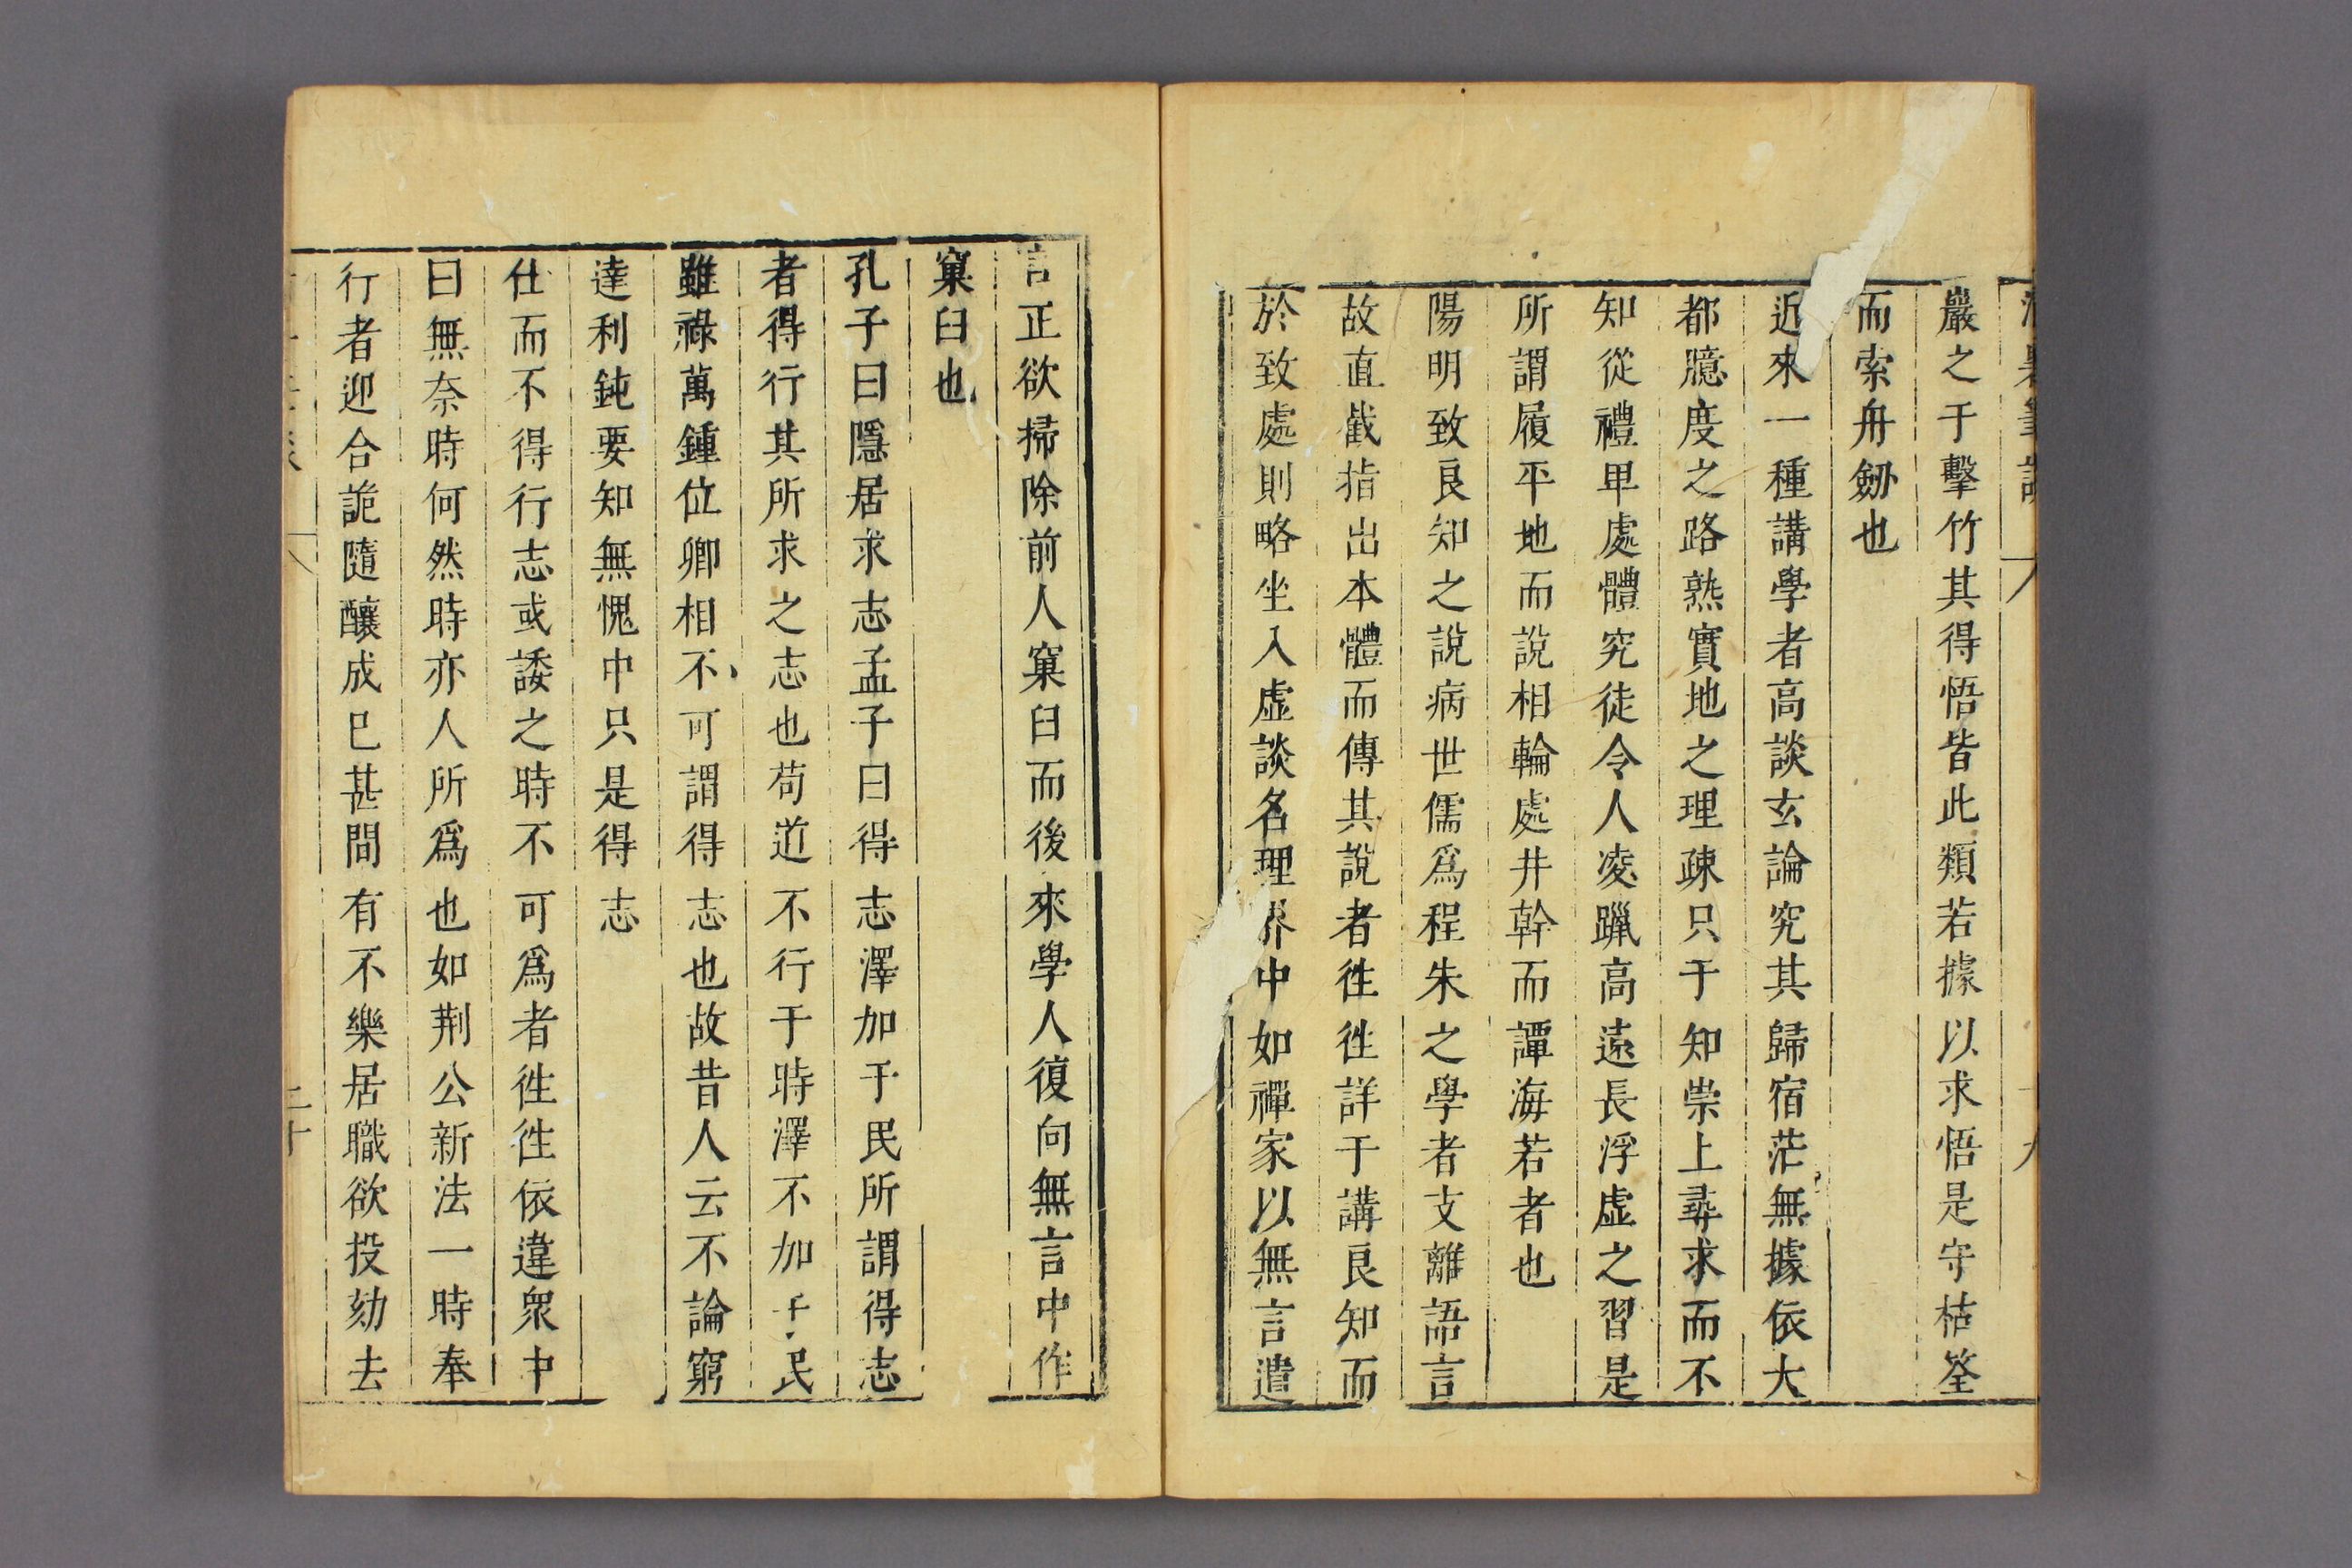 巖之于擊竹其得悟皆此類若據以求悟是守桔筌
而索舟劔也
近來一種講學者高談玄論究其歸宿茫無據依大
都臆度之路熟實地之理疎只于知崇上尋求而不
知從禮卑處體究徒令人凌躐高遠長浮虛之習是
所謂履平地而說相輪處井幹而譚海若者也
陽明致良知之說病世儒爲程朱之學者支離語言
故直截指出本體而傳其說者徃徃詳于講良知而
於致處則略坐入虛談名理界中如禪家以無言遣
言正欲掃除前人窠臼而後來學人復向無言中作
窠臼也
孔子曰隱居求志孟子曰得志澤加于民所謂得志
者得行其所求之志也苟道不行于時澤不加于民
雖祿萬鍾位卿相不可謂得志也故昔人云不論窮
達利鈍要知無愧中只是得志
仕而不得行志或諉之時不可爲者徃徃依違眾中
曰無奈時何然時亦人所爲也如荆公新法一時奉
行者迎合詭隨釀成巳甚間有不樂居職欲投劾去